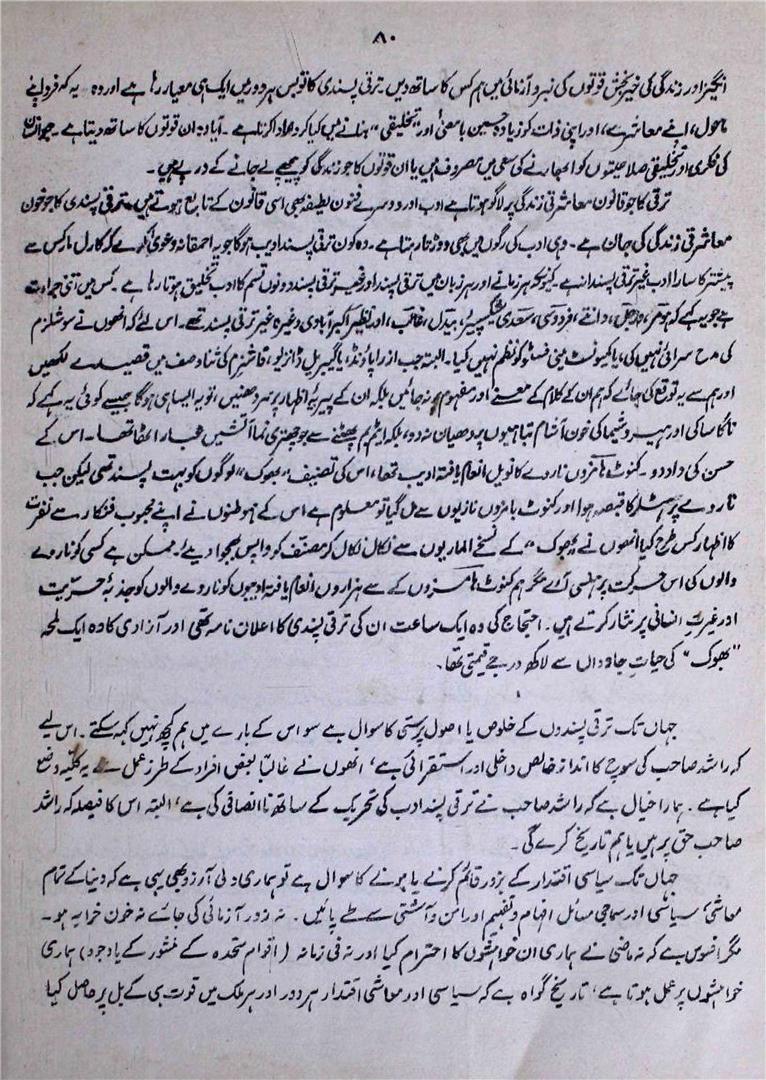 ۸۰
انگیز اور زندگی کی خیر بخش قوتوں کی نبرد آزمائی میں ہم کس کا ساتھ دیں۔ ترقی پسندی کا تو بس ہر دور میں ایک ہی معیار رہا ہے اور وہ ۔ یہ کہ فرد اپنے
ماحول، اپنے معاشرے، اور اپنی ذات کو زیادہ حسین بامعنی اور تخلیقی " بنانے میں کیا کردار ادا کرتا ہے ۔ آیا وہ ان قوتوں کا ساتھ دیتا ہے ۔ جو انسان
کی فکری اور تخلیقی صلاحیتوں کو ابھارنے کی سعی میں مصروف ہیں یا ان قوتوں کا جو زندگی کو پیچھے لے جانے کے درپے ہیں ۔
ترقی کا جو قانون معاشرتی زندگی پر لاگو ہوتا ہے ادب اور دوسرے فنون لطیفہ بھی اسی قانون کے تابع ہوتے ہیں۔ ترقی پسندی کا جو خون
معاشرتی زندگی کی جان ہے ۔ وہی ادب کی رگوں میں بھی دوڑتا رہتا ہے ۔ وہ کون ترقی پسند ادیب ہوگا جو یہ احمقانہ دعویٰ کرے کہ کارل مارکس سے
پیشتر کا سارا ادب غیر ترقی پسندانہ ہے ۔ کیونکہ ہر زمانے اور ہر زبان میں ترقی پسند اور غیر ترقی پسند دونوں قسم کا ادب تخلیق ہوتا رہا ہے ۔ کس میں اتنی جراءت
ہے جو یہ کہے کہ ہومر، ورجل، دانتے، فردوسی، سعدی، شیکسپیئر، بیدل، غالب، اور نظیر اکبر آبادی وغیرہ غیر ترقی پسند تھے۔ اس لئے کہ انھوں نے سوشلزم
کی مدح سرائی نہیں کی، یا کمیونسٹ مینی فسٹو کو نظم نہیں کیا۔ البتہ جب ازرا پاؤنڈ، یا گیبریل ڈانزیو، فاشزم کی ثنا و صف میں قصیدے لکھیں
اور ہم سے یہ توقع کی جائے کہ ہم ان کے کلام کے معنے اور مفہوم پر نہ جائیں بلکہ ان کے پیرایۂ اظہار پر سر دھنیں، تو یہ ایسا ہی ہوگا جیسے کوئی یہ کہے کہ
ناگاساکی اور ہیروشیما کی خون آشام تباہیوں پر دھیان نہ دو، بلکہ ایٹم بم پھٹنے سے جو چھتری نما آتشیں غبار اٹھا تھا۔ اس کے
حسن کی داد دو ۔ کنوٹ ہامزوں ناروے کا نوبل انعام یافتہ ادیب تھا، اس کی تصنیف "بھوک" لوگوں کو بہت پسند تھی لیکن جب
ناروے پر ہٹلر کا قبضہ ہوا اور کنوٹ ہامزوں نازیوں سے مل گیا تو معلوم ہے اس کے ہموطنوں نے اپنے محبوب فنکار سے نفرت
کا اظہار کس طرح کیا انھوں نے "بھوک" کے نسخے الماریوں سے نکال نکال کر مصنف کو واپس بھجوا دیئے۔ ممکن ہے کسی کو ناروے
والوں کی اس حرکت پر ہنسی آئے مگر ہم کنوٹ ہامزوں کے سے ہزاروں انعام یافتہ ادیبوں کو ناروے والوں کو جذبۂ حریت
اور غیرت انسانی پر نثار کرتے ہیں۔ احتجاج کی وہ ایک ساعت ان کی ترقی پسندی کا اعلان نامہ تھی اور آزادی کا وہ ایک لمحہ
"بھوک" کی حیاتِ جاوداں سے لاکھ درجے قیمتی تھا۔
جہاں تک ترقی پسندوں کے خلوص یا اصول پرستی کا سوال ہے سو اس کے بارے میں ہم کچھ نہیں کہہ سکتے ۔ اس لیے
کہ راشد صاحب کی سوچ کا انداز خالص داخلی اور استقرائی ہے، انھوں نے غالباً بعض افراد کے طرز عمل سے یہ کلیہ وضع
کیا ہے ۔ ہمارا خیال ہے کہ راشد صاحب نے ترقی پسند ادب کی تحریک کے ساتھ نا انصافی کی ہے، البتہ اس کا فیصلہ کہ راشد
صاحب حق پر ہیں یا ہم تاریخ کرے گی ۔
جہاں تک سیاسی اقتدار کے بزور قائم کرنے یا ہونے کا سوال ہے تو ہماری دلی آرزو بھی یہی ہے کہ دنیا کے تمام
معاشی، سیاسی اور سماجی مسائل افہام و تفہیم اور امن و آشتی سے طے پائیں ۔ نہ زور آزمائی کی جائے نہ خون خرابہ ہو۔
مگر افسوس ہے کہ نہ ماضی نے ہماری ان خواہشوں کا احترام کیا اور نہ فی زمانہ (اقوام متحدہ کے منشور کے باوجود) ہماری
خواہشوں پر عمل ہوتا ہے، تاریخ گواہ ہے کہ سیاسی اور معاشی اقتدار ہر دور اور ہر ملک میں قوت ہی کے بل پر حاصل کیا